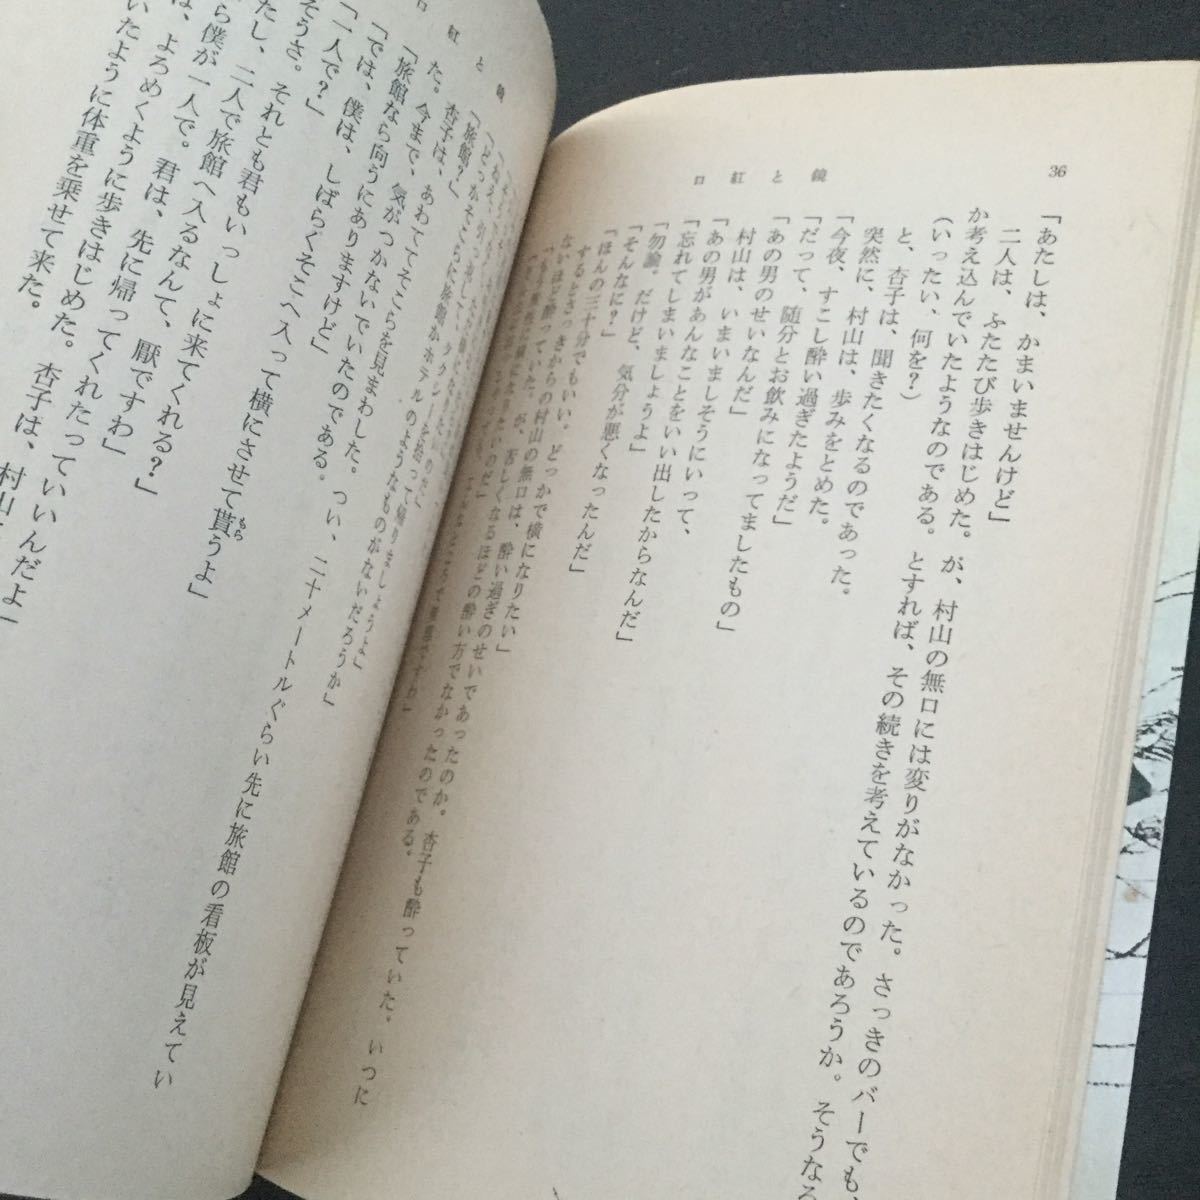 36
口紅と鏡
「あたしは、かまいませんけど」
二人は、ふたたび歩きはじめた。が、村山の無口には変りがなかった。さっきのバーでも、
か考え込んでいたようなのである。とすれば、その続きを考えているのであろうか。そうなる
（いったい、何を？）
と、杏子は、聞きたくなるのであった。
突然に、村山は、歩みをとめた。
「今夜、すこし酔い過ぎたようだ」
「だって、随分とお飲みになってましたもの」
「あの男のせいなんだ」
村山は、いまいましそうにいって、
「あの男があんなことをいい出したからなんだ」
「忘れてしまいましょうよ」
「勿論。だけど、気分が悪くなったんだ」
「そんなに？」
「ほんの三十分でもいい。どっかで横になりたい」
するとさっきからの村山の無口は、酔い過ぎのせいであったのか。杏子も酔っていた。いつに
ないほど酔っていた。が、苦しくなるほどの酔い方でなかったのである。
口紅と鏡
「旅館？」
「どっかそこらに旅館かホテルのようなものがないだろうか」
杏子は、あわててそこらを見まわした。つい、二十メートルぐらい先に旅館の看板が見えてい
た。今まで、気がつかないでいたのである。
「旅館なら向うにありますけど」
「では、僕は、しばらくそこへ入って横にさせて貰うよ」
もら
「一人で？」
そうさ。それとも君もいっしょに来てくれる？」
たし、二人で旅館へ入るなんて、厭ですわ」
ら僕が一人で。君は、先に帰ってくれたっていいんだよ」
は、よろめくように歩きはじめた。杏子は、村山
いたように体重を乗せて来た。